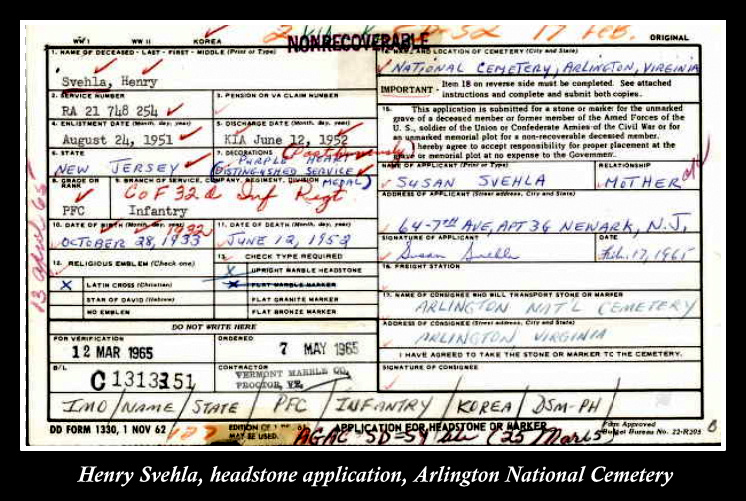 WW I WW II KOREA
NONRECOVERABLE 17 Feb. ORIGINAL
1. NAME OF DECEASED - LAST - FIRST - MIDDLE (Print or Type)
Svehla, Henry
2. SERVICE NUMBER
RA 21 748 254
3. PENSION OR VA CLAIM NUMBER
4. ENLISTMENT DATE (Month, day, year)
August 24, 1951
5. DISCHARGE DATE (Month, day, year)
KIA June 12, 1952
6. STATE
NEW JERSEY
7. DECORATIONS
(Posthumously)
PURPLE HEART
DISTINGUISHED SERVICE
MEDAL)
8. GRADE OR RANK
PFC
9. BRANCH OF SERVICE, COMPANY, REGIMENT, DIVISION
Co F 32d Inf Regt
Infantry
10. DATE OF BIRTH (Month, day, year)
1932
OCTOBER 28, 1933
11. DATE OF DEATH (Month, day, year)
JUNE 12, 1952
12. RELIGIOUS EMBLEM (Check one)
X LATIN CROSS (Christian)
STAR OF DAVID (Hebrew)
NO EMBLEM
13. CHECK TYPE REQUIRED
X UPRIGHT MARBLE HEADSTONE
X FLAT MARBLE MARKER
FLAT GRANITE MARKER
FLAT BRONZE MARKER
DO NOT WRITE HERE
FOR VERIFICATION
12 MAR 1965
ORDERED
7 MAY 1965
B/L
C 1313151
CONTRACTOR
VERMONT MARBLE CO,
PROCTOR, VT.
NAME AND LOCATION OF CEMETERY (City and State)
NATIONAL CEMETERY, ARLINGTON, VIRGINIA
IMPORTANT - Item 18 on reverse side must be completed. See attached
instructions and complete and submit both copies.
15. This application is submitted for a stone or marker for the unmarked
grave of a deceased member or former member of the Armed Forces of the
U. S., soldier of the Union or Confederate Armies of the Civil War or for
an unmarked memorial plot for a non-recoverable deceased member.
I hereby agree to accept responsibility for proper placement at the
grave or memorial plot at no expense to the Government.
NAME OF APPLICANT (Print or Type)
SUSAN SVEHLA
RELATIONSHIP
MOTHER
ADDRESS OF APPLICANT (Street address, City and State)
64-7TH AVE, APT 3G NEWARK, N.J.
SIGNATURE OF APPLICANT
Susan Svehla
DATE
Feb. 17, 1965
16. FREIGHT STATION
17. NAME OF CONSIGNEE WHO WILL TRANSPORT STONE OR MARKER
ARLINGTON NAT'L CEMETERY
ADDRESS OF CONSIGNEE (Street address, City and State)
ARLINGTON VIRGINIA
I HAVE AGREED TO TAKE THE STONE OR MARKER TO THE CEMETERY.
SIGNATURE OF CONSIGNEE
IMO/NAME/STATE/PFC/INFANTRY/KOREA/DSM-PH/
DD FORM 1330, 1 NOV 62 EDITION OF MAY BE USED. APPLICATION FOR HEADSTONE OR MARKER Form Approved Budget Bureau No. 22-R205
Henry Svehla, headstone application, Arlington National Cemetery